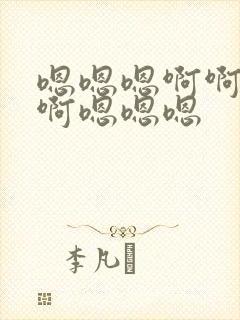 嗯嗯嗯啊啊
啊嗯嗯嗯
李凡